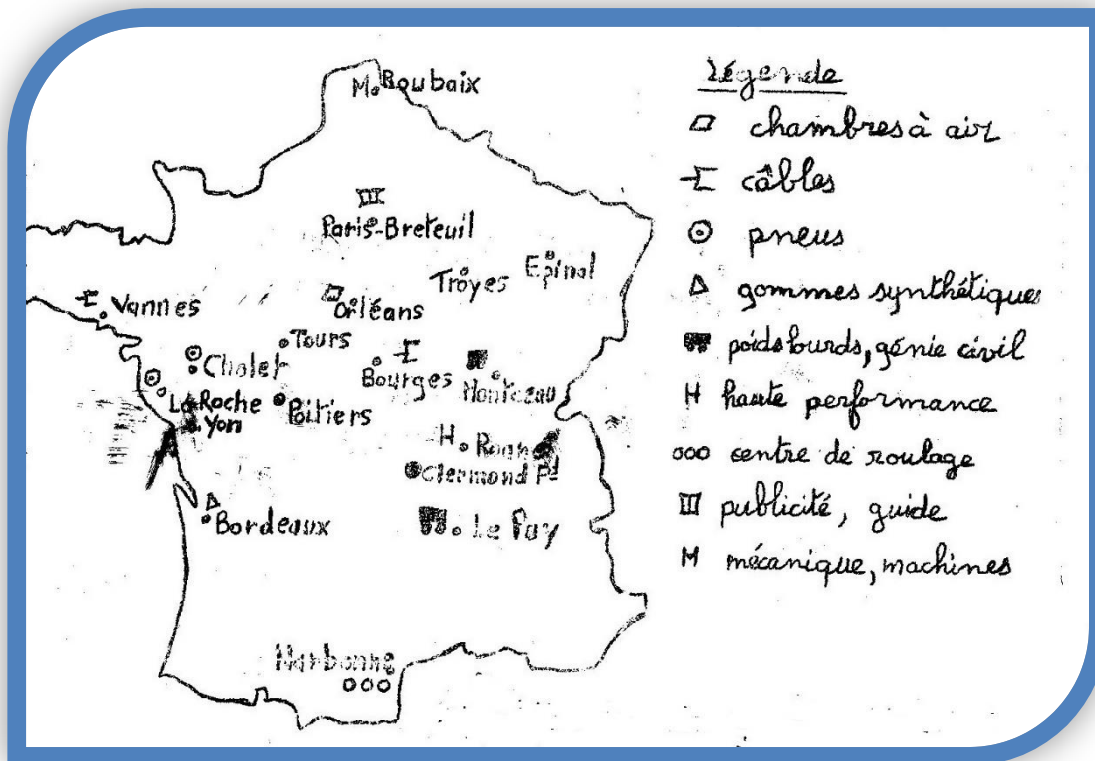 M. Roubaix
Paris-Breteuil
Epinal
Troyes
Orléans
Vannes
Tours
Cholet
Bourges
Montceau
La Roche
Yon
Poitiers
H . Roanne
Clermond Fd
Bordeaux
Le Puy
Narbonne
Légende
chambres à air
câbles
pneus
gommes synthétiques
poids lourds, génie civil
H haute performance
ooo centre de roulage
publicité, guide
M mécanique, machines